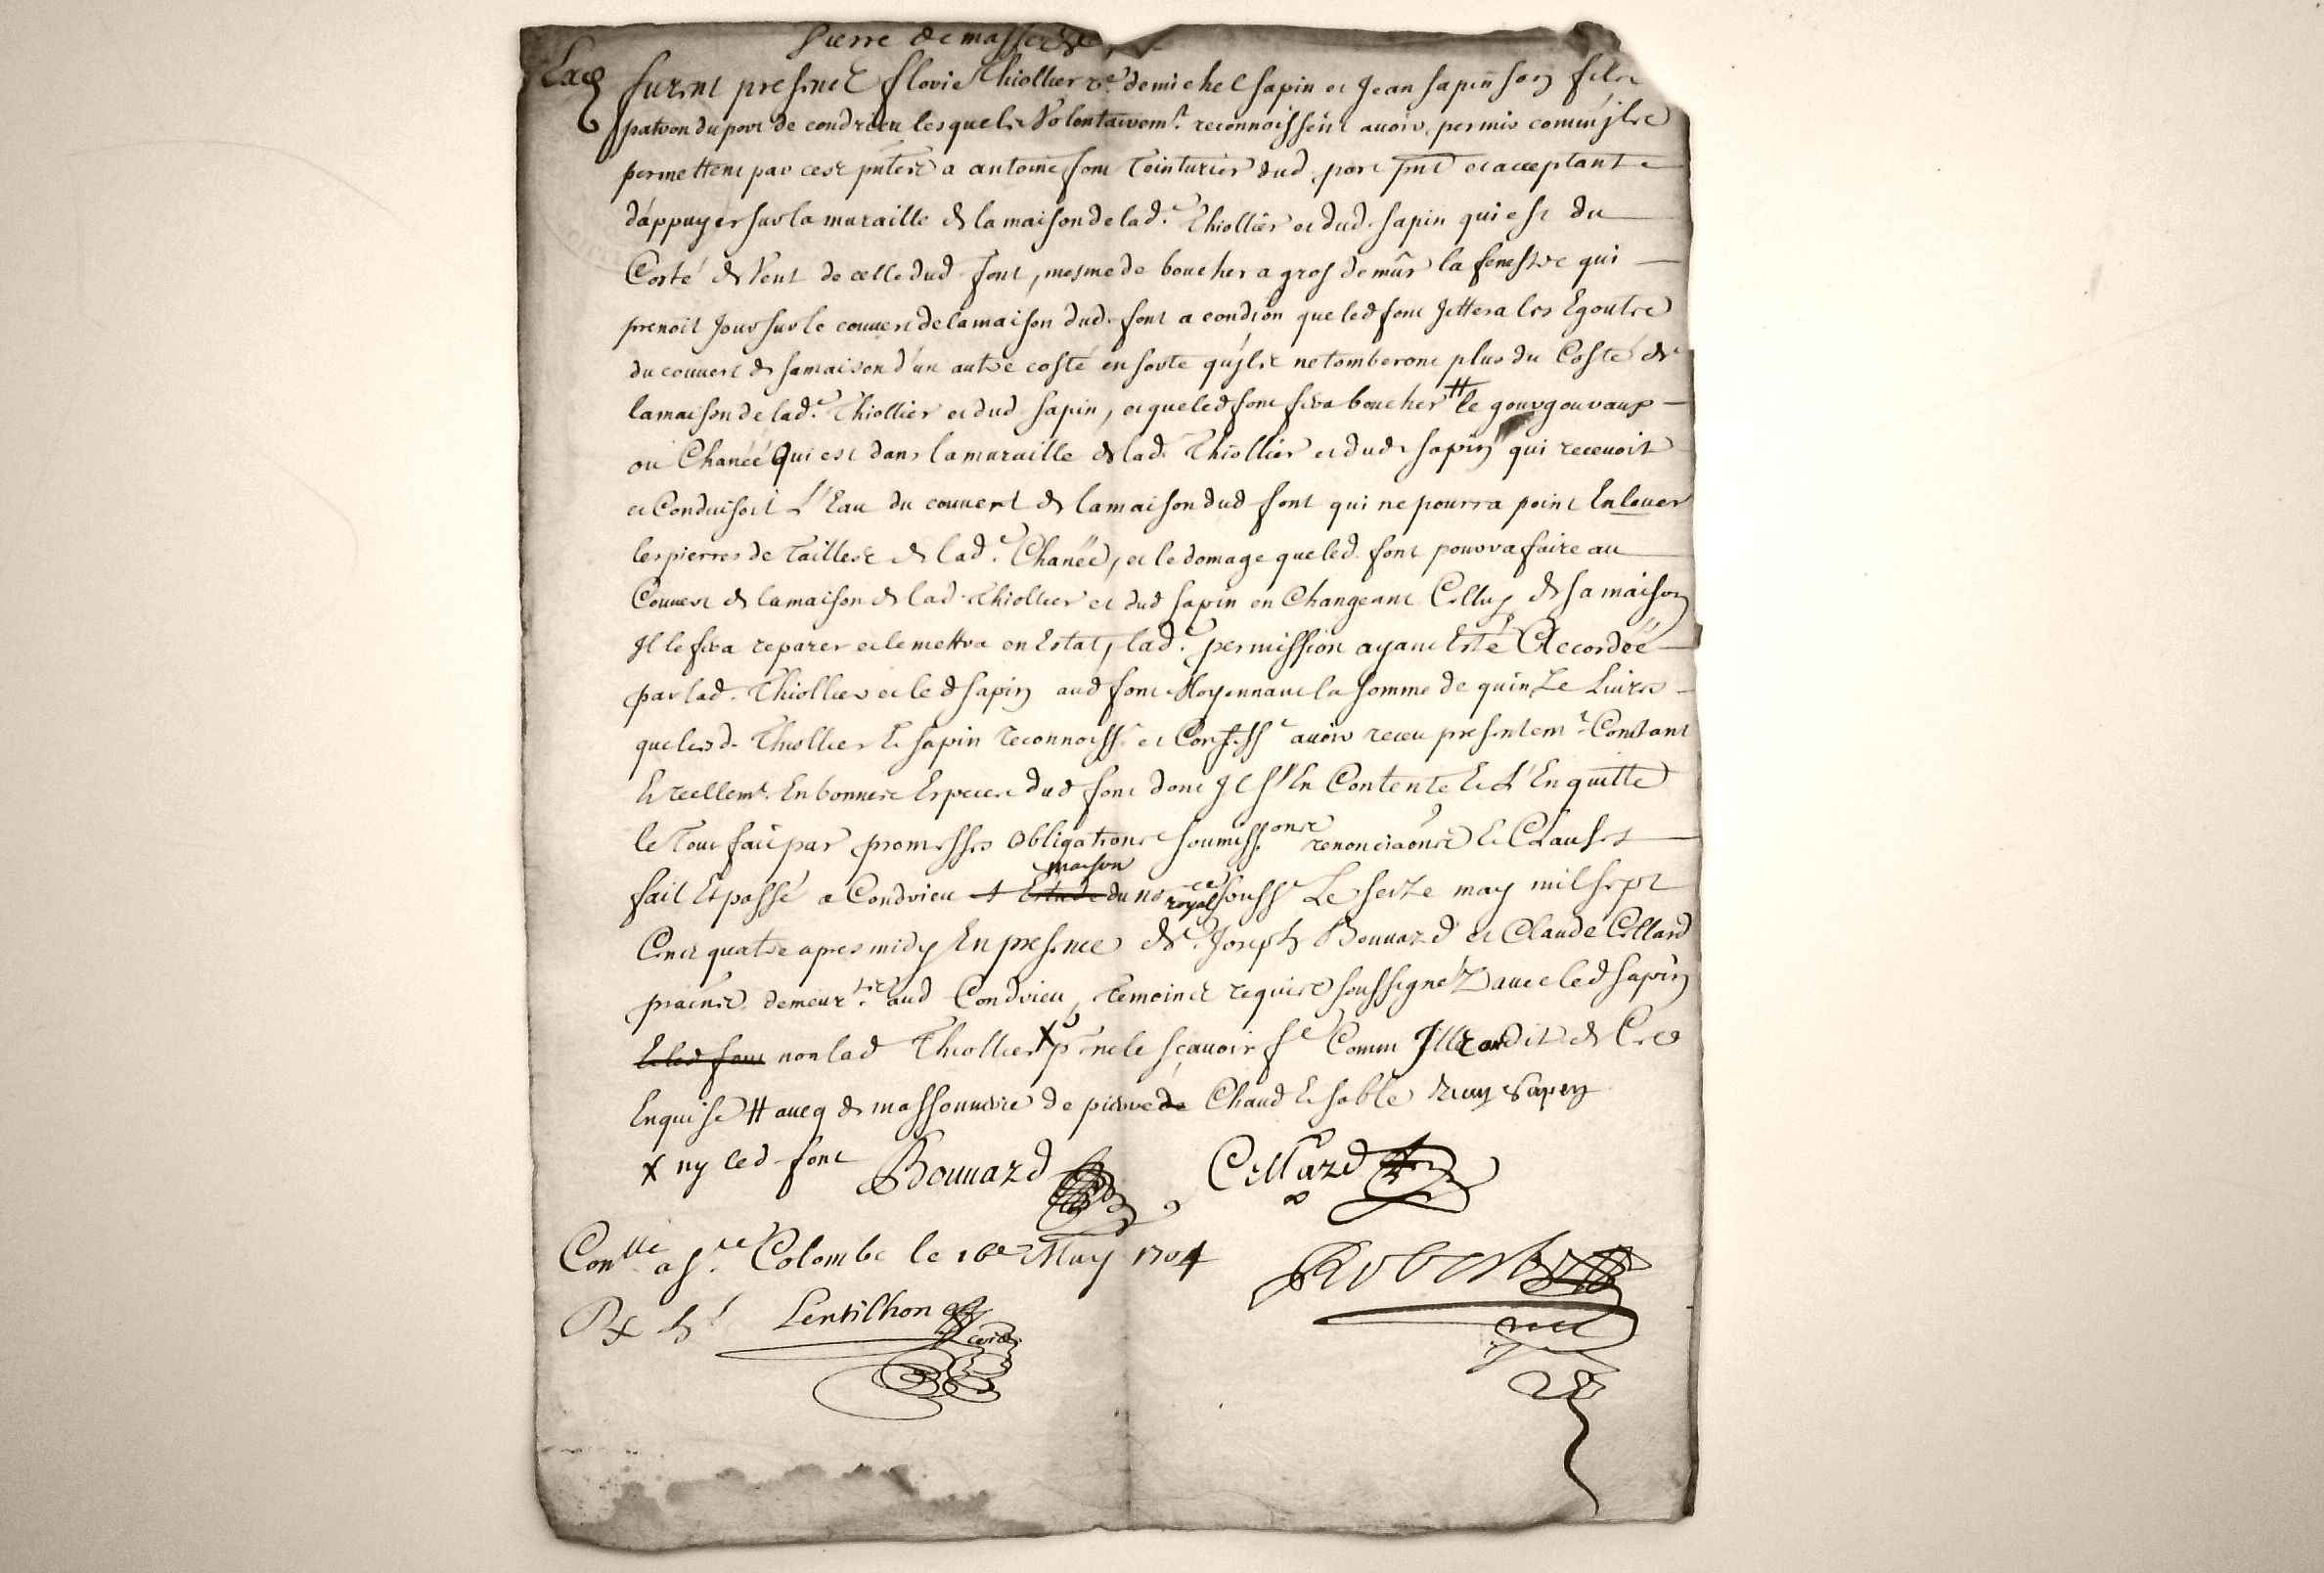 pierre de
furent presents flovie Thiollier ve de michel sapin et Jean sapin son fils
patron du port de condrieu lesquels Volontairemt. reconnoissent avoir permis comm'jls
permettent par ces pntes a antoine font Teinturier dud. port pnt et acceptant
d'appuyer sur la muraille de la maison de lad.e Thiollier et dud. sapin qui est du
Costé de Vent de celle dud font, mesme de boucher a gros de mûr la fenestre qui
prenoit Jour sur le couvert de la maison dud. font a condion que led font Jettera les Egouts
du couvert de sa maison d'un autre costé en sorte qu'jls ne tomberont plus du Costé de
la maison de lad.e Thiollier et dud sapin, et que led font fera boucher # le gourgouvaux
ou Chanéé Qui est dans la muraille de lad. Thiollier et dud. sapin qui recevoit
et Conduisoit L'Eau du couvert de la maison dud font qui ne pourra point Enlever
les pierres de Tailles de lad.e Chanéé, et le domage que led. font pourra faire au
Couvert de la maison de lad Thiollier et dud sapin en Changeant Celluy de sa maison
Jl le fera reparer et le mettra en Estat, lad.e permission ayant Esté Accordéé
par lad. Thiollier et led sapin aud font Moyennant la somme de quinze Livres
que lesd. Thiollier & sapin reconnoiss.t et Confess.t avoir receu presentem.t Contant
& reellemt. En bonnes Especes dud font dont Jls s'En Contente & L'En quitte
le Tout fait par promesses obligations soumiss.ons renonciaons & Clauses
fait Et passé a Condrieu maison du no.re royal souss.é Le seize may mil sept
Cent quatre apres midy En presence de s.r Joseph Bouvard et Claude Cellard
praens demeur.ts aud Condrieu, temoins requis soussignéz avec led sapin
& led font non lad Thiollier X p.r ne le sçavoir f.e Comm Jlle ont dit de Ce
Enquise # avec de massonnerie de pierre de Chaud & sable Jean Sapin
X ny led font Bouvard Cellard
Con.lle a s.te Colombe le 16e May 1704
Robert
Rx Lentilhon